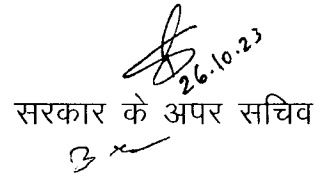 26.10.23
सरकार के अपर सचिव